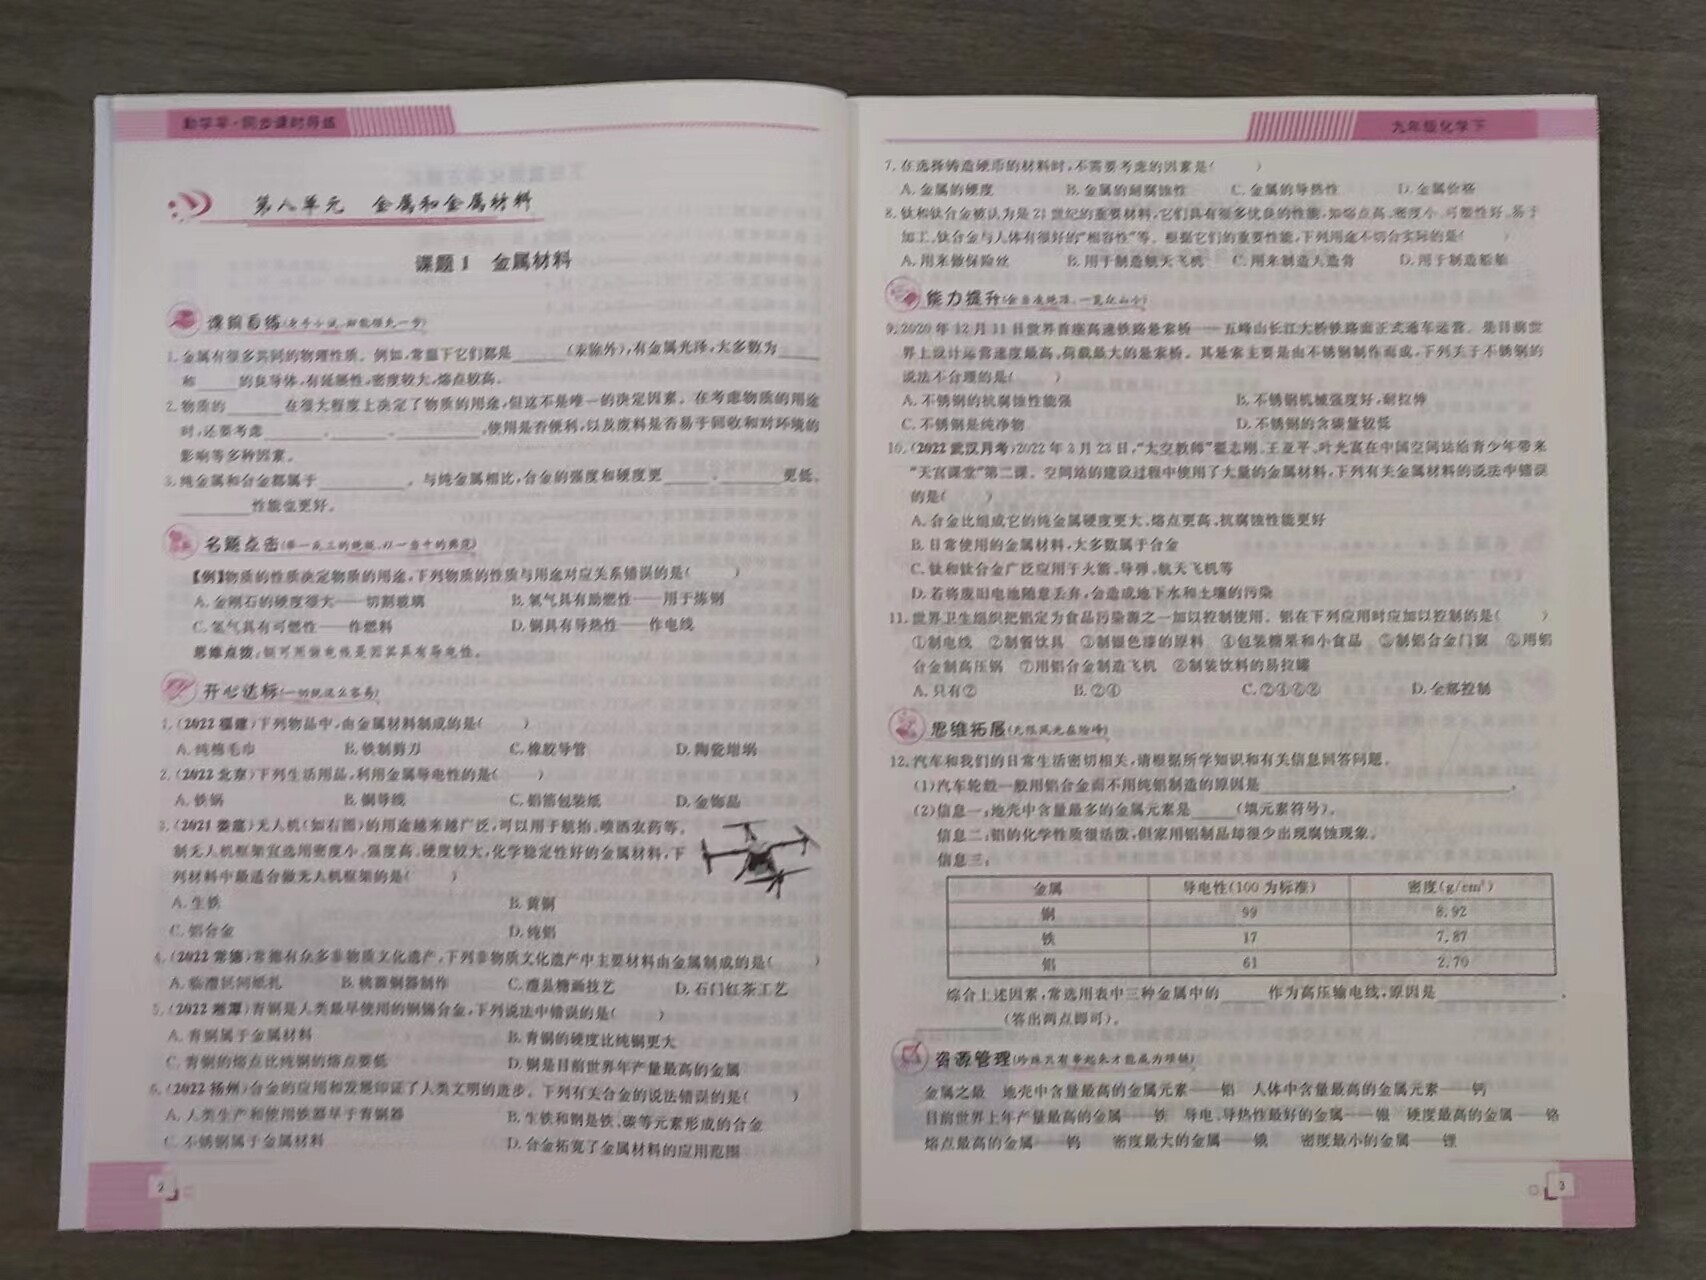 勤学早·同步课时导练
第八单元 金属和金属材料
课题1 金属材料
课前自练
1.金属有很多共同的物理性质。例如,常温下它们都是______(汞除外),有金属光泽,大多数为____
和____的良导体,有延展性,密度较大,熔点较高。
2.物质的______在很大程度上决定了物质的用途,但这不是唯一的决定因素。在考虑物质的用途
时,还要考虑______、______、________、使用是否便利,以及废料是否易于回收和对环境的
影响等多种因素。
3.纯金属和合金都属于________。与纯金属相比,合金的强度和硬度更_____、______更低、
______性能也更好。
名题点击(举一反三的绝版,以一当十的典范)
【例】物质的性质决定物质的用途,下列物质的性质与用途对应关系错误的是( )
A.金刚石的硬度很大——切割玻璃 B.氧气具有助燃性——用于炼钢
C.氢气具有可燃性——作燃料 D.铜具有导热性——作电线
思维点拨:铜可用做电线是因其具有导电性。
开心达标(一切就这么容易)
1.(2022福建)下列物品中,由金属材料制成的是( )
A.纯棉毛巾 B.铁制剪刀 C.橡胶导管 D.陶瓷坩埚
2.(2022北京)下列生活用品,利用金属导电性的是( )
A.铁锅 B.铜导线 C.铝箔包装纸 D.金饰品
3.(2021娄底)无人机(如右图)的用途越来越广泛,可以用于航拍、喷洒农药等。
制无人机框架宜选用密度小、强度高、硬度较大,化学稳定性好的金属材料,下
列材料中最适合做无人机框架的是( )
A.生铁 B.黄铜
C.铝合金 D.纯铝
4.(2022常德)常德有众多非物质文化遗产,下列非物质文化遗产中主要材料由金属制成的是( )
A.临澧区河纸扎 B.桃源铜器制作 C.澧县糖画技艺 D.石门红茶工艺
5.(2022湘潭)青铜是人类最早使用的铜锡合金,下列说法中错误的是( )
A.青铜属于金属材料 B.青铜的硬度比纯铜更大
C.青铜的熔点比纯铜的熔点要低 D.铜是目前世界年产量最高的金属
6.(2022扬州)合金的应用和发展印证了人类文明的进步。下列有关合金的说法错误的是( )
A.人类生产和使用铁器早于青铜器 B.生铁和钢是铁、碳等元素形成的合金
C.不锈钢属于金属材料 D.合金拓宽了金属材料的应用范围
2
九年级化学下
7.在选择铸造硬币的材料时,不需要考虑的因素是( )
A.金属的硬度 B.金属的耐腐蚀性 C.金属的导热性 D.金属价格
8.钛和钛合金被认为是21世纪的重要材料,它们具有很多优良的性能,如熔点高、密度小、可塑性好、易于
加工、钛合金与人体有很好的“相容性”等。根据它们的重要性能,下列用途不切合实际的是( )
A.用来做保险丝 B.用于制造航天飞机 C.用来制造人造骨 D.用于制造船舶
能力提升(会当凌绝顶,一览众山小)
9.2020年12月11日世界首座高速铁路悬索桥——五峰山长江大桥铁路面正式通车运营。是目前世
界上设计运营速度最高、荷载最大的悬索桥。其悬索主要是由不锈钢制作而成,下列关于不锈钢的
说法不合理的是( )
A.不锈钢的抗腐蚀性能强 B.不锈钢机械强度好,耐拉伸
C.不锈钢是纯净物 D.不锈钢的含碳量较低
10.(2022武汉月考)2022年3月23日,“太空教师”翟志刚、王亚平、叶光富在中国空间站给青少年带来
“天宫课堂”第二课。空间站的建设过程中使用了大量的金属材料,下列有关金属材料的说法中错误
的是( )
A.合金比组成它的纯金属硬度更大、熔点更高、抗腐蚀性能更好
B.日常使用的金属材料,大多数属于合金
C.钛和钛合金广泛应用于火箭、导弹、航天飞机等
D.若将废旧电池随意丢弃,会造成地下水和土壤的污染
11.世界卫生组织把铝定为食品污染源之一加以控制使用。铝在下列应用时应加以控制的是( )
①制电线 ②制餐饮具 ③制银色漆的原料 ④包装糖果和小食品 ⑤制铝合金门窗 ⑥用铝
合金制高压锅 ⑦用铝合金制造飞机 ⑧制装饮料的易拉罐
A.只有② B.②④ C.②④⑥⑧ D.全部控制
思维拓展(无限风光在险峰)
12.汽车和我们的日常生活密切相关,请根据所学知识和有关信息回答问题。
(1)汽车轮毂一般用铝合金而不用纯铝制造的原因是________________________。
(2)信息一:地壳中含量最多的金属元素是____(填元素符号)。
信息二:铝的化学性质很活泼,但家用铝制品却很少出现腐蚀现象。
信息三:
金属 导电性(100为标准) 密度(g/cm³)
铜 99 8.92
铁 17 7.87
铝 61 2.70
综合上述因素,常选用表中三种金属中的____作为高压输电线,原因是____________
________(答出两点即可)。
资源管理(珍珠只有串起来才能成为项链)
金属之最 地壳中含量最高的金属元素——铝 人体中含量最高的金属元素——钙
目前世界上年产量最高的金属——铁 导电、导热性最好的金属——银 硬度最高的金属——铬
熔点最高的金属——钨 密度最大的金属——锇 密度最小的金属——锂
3